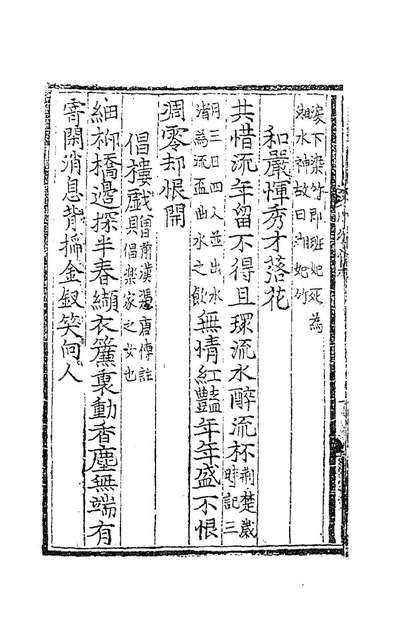 淚下染竹即班妃死為
湘水神故曰湘妃竹
和嚴惲秀才落花
共惜流年留不得且環流水醉流杯荆楚歲時記三
月三日四人並出水
渚為流盃曲水之飲無情紅豔年年盛不恨
凋零却恨開
倡樓戲曾前漢
具倡樂家之女也
細柳橋邊深半春纈衣簾裏動香塵無端有
寄閑消息背插金釵笑向人